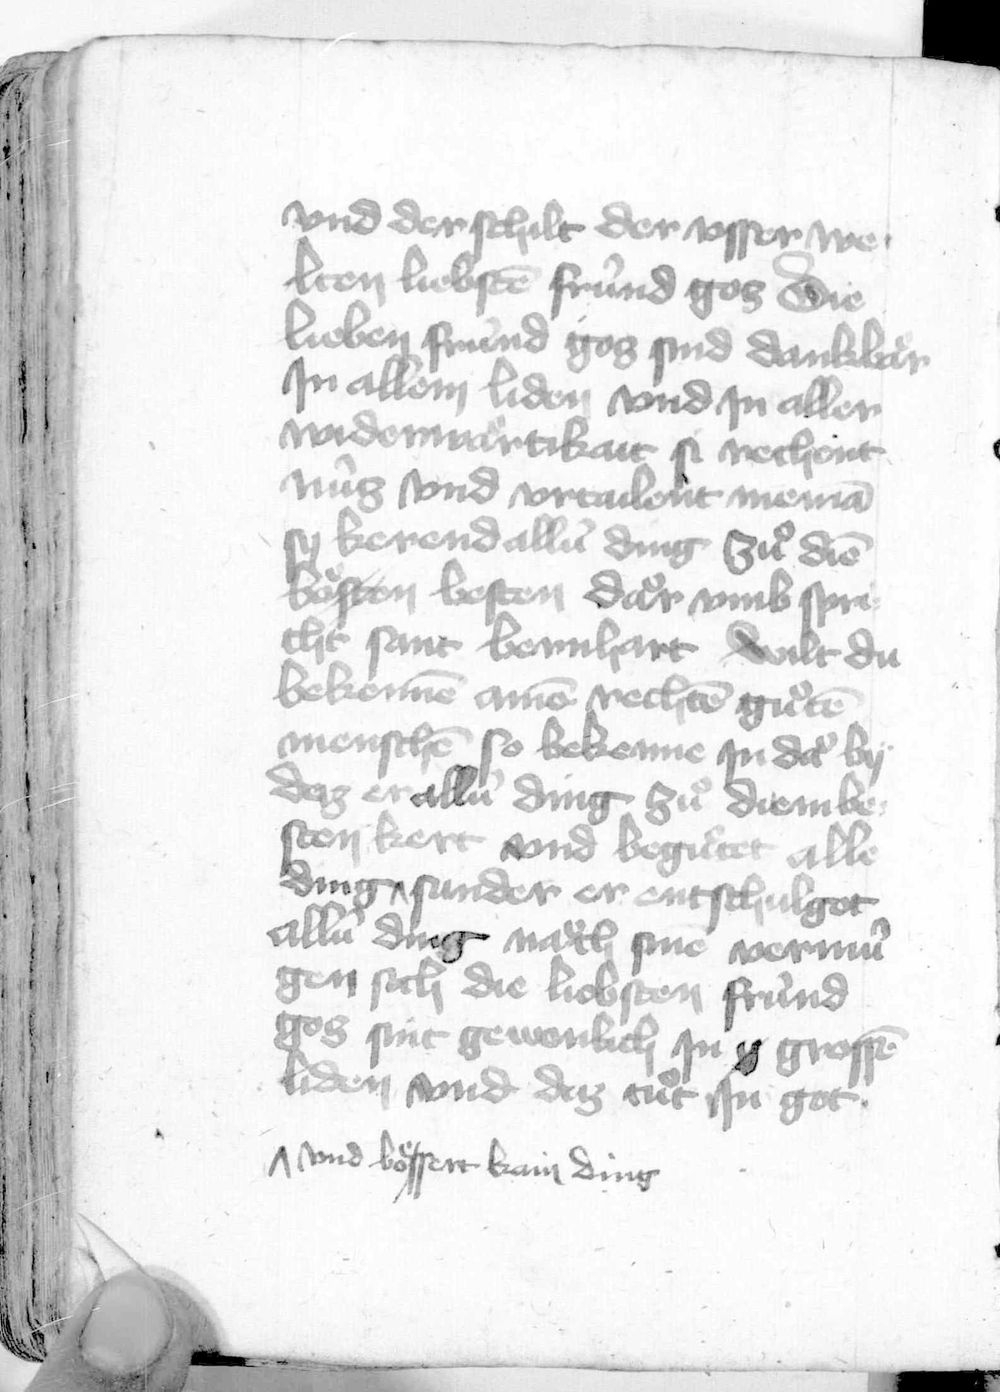 vnd der schilt der vsser we-
lten liebstē frúnd gos Die
lieben frúnd gos sind dankbaͤr
In allem liden vnd In aller
widerwaͤrtikait si rechent
núg vnd vrtailent niemā
sy kerend allú ding zuͦ diē
boͤsten besten daͤr vmb spri-
cht sant bernhart Wilt du
bekennē ainē rechtē guͦtē
menschē so bekenne In daͤ by
daz er allú ding zuͦ diem be-
sten kert vnd beguͤtet alle
ding ^ sunder er entschulget
allú ding naͤch sinē vermú
gen sich die liebsten frúnd
gos sint gewonlich In grossē
liden vnd daz tuͦt In got
^ vnd boͤssert kain ding